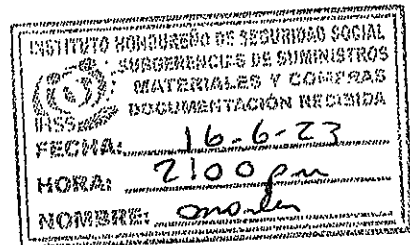 INSTITUTO HONDUREÑO DE SEGURIDAD SOCIAL
SUBGERENCIAS DE SUMINISTROS
MATERIALES Y COMPRAS
DOCUMENTACIÓN RECIBIDA
IHSS
FECHA: 16-6-23
HORA: 2:00 pm
NOMBRE: